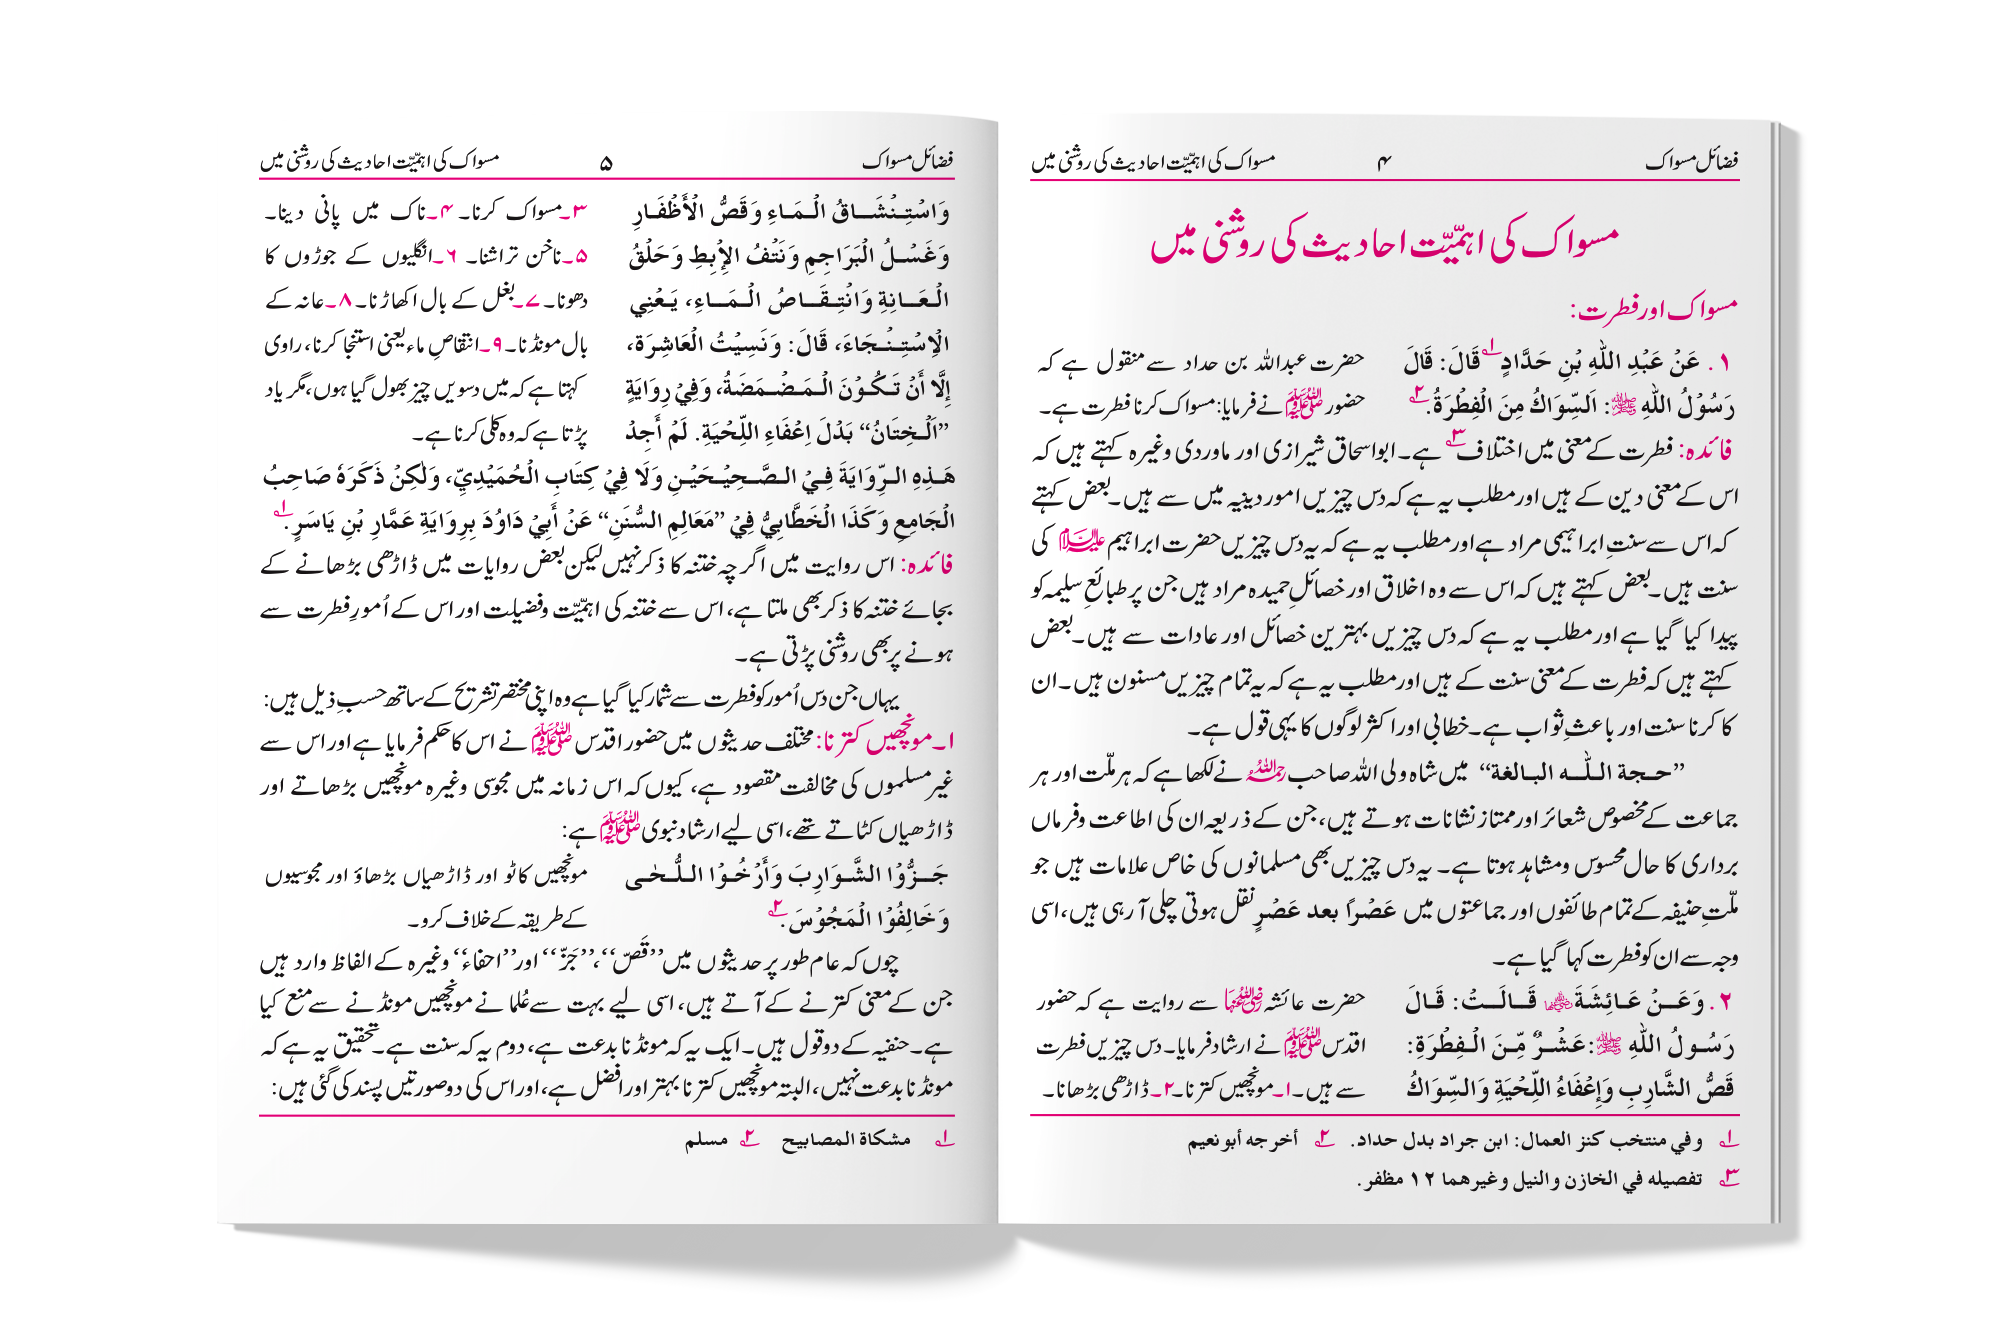 فضائل مسواک ۴ مسواک کی اہمیّت احادیث کی روشنی میں
مسواک کی اہمیّت احادیث کی روشنی میں
مسواک اور فطرت:
۱. عَنْ عَبْدِ اللّٰهِ بْنِ حَدَّادٍ۱ قَالَ: قَالَ
رَسُوْلُ اللّٰهِ ﷺ: اَلسِّوَاكُ مِنَ الْفِطْرَةُ.۲
حضرت عبداللہ بن حداد سے منقول ہے کہ
حضور ﷺ نے فرمایا: مسواک کرنا فطرت ہے۔
فائدہ: فطرت کے معنی میں اختلاف۳ ہے۔ ابواسحاق شیرازی اور ماوردی وغیرہ کہتے ہیں کہ
اس کے معنی دین کے ہیں اور مطلب یہ ہے کہ دس چیزیں امور دینیہ میں سے ہیں۔ بعض کہتے
کہ اس سے سنتِ ابراہیمی مراد ہے اور مطلب یہ ہے کہ یہ دس چیزیں حضرت ابراہیم علیہ السلام کی
سنت ہیں۔ بعض کہتے ہیں کہ اس سے وہ اخلاق اور خصائلِ حمیدہ مراد ہیں جن پر طبائعِ سلیمہ کو
پیدا کیا گیا ہے اور مطلب یہ ہے کہ دس چیزیں بہترین خصائل اور عادات سے ہیں۔ بعض
کہتے ہیں کہ فطرت کے معنی سنت کے ہیں اور مطلب یہ ہے کہ یہ تمام چیزیں مسنون ہیں۔ ان
کا کرنا سنت اور باعثِ ثواب ہے۔ خطابی اور اکثر لوگوں کا یہی قول ہے۔
”حجة اللّٰه البالغة“ میں شاہ ولی اللہ صاحب رحمہ اللہ نے لکھا ہے کہ ہر ملّت اور ہر
جماعت کے مخصوص شعائر اور ممتاز نشانات ہوتے ہیں، جن کے ذریعہ ان کی اطاعت وفرماں
برداری کا حال محسوس ومشاہد ہوتا ہے۔ یہ دس چیزیں بھی مسلمانوں کی خاص علامات ہیں جو
ملّتِ حنیفہ کے تمام طائفوں اور جماعتوں میں عَصْرًا بعد عَصْرٍ نقل ہوتی چلی آ رہی ہیں، اسی
وجہ سے ان کو فطرت کہا گیا ہے۔
۲. وَعَنْ عَائِشَةَ رضی اللہ عنہا قَالَتْ: قَالَ
رَسُولُ اللّٰهِ ﷺ: عَشْرٌ مِّنَ الْفِطْرَةِ:
قَصُّ الشَّارِبِ وَإِعْفَاءُ اللِّحْيَةِ وَالسِّوَاكُ
حضرت عائشہ رضی اللہ عنہا سے روایت ہے کہ حضور
اقدس ﷺ نے ارشاد فرمایا۔ دس چیزیں فطرت
سے ہیں۔ ۱۔ مونچھیں کترنا۔ ۲۔ ڈاڑھی بڑھانا۔
۱ وفي منتخب كنز العمال: ابن جراد بدل حداد. ۲ أخرجه أبو نعيم
۳ تفصيله في الخازن والنيل وغيرهما ۱۲ مظفر.
فضائل مسواک ۵ مسواک کی اہمیّت احادیث کی روشنی میں
وَاسْتِنْشَاقُ الْمَاءِ وَقَصُّ الْأَظْفَارِ
وَغَسْلُ الْبَرَاجِمِ وَنَتْفُ الْإِبِطِ وَحَلْقُ
الْعَانِةِ وَانْتِقَاصُ الْمَاءِ، يَعْنِي
الْاِسْتِنْجَاءَ، قَالَ: وَنَسِيْتُ الْعَاشِرَةَ،
إِلَّا أَنْ تَكُوْنَ الْمَضْمَضَةُ، وَفِيْ رِوَايَةٍ
”اَلْخِتَانُ“ بَدْلَ اِعْفَاءِ اللِّحْيَةِ. لَمْ أَجِدْ
۳۔ مسواک کرنا۔ ۴۔ ناک میں پانی دینا۔
۵۔ ناخن تراشنا۔ ۶۔ انگلیوں کے جوڑوں کا
دھونا۔ ۷۔ بغل کے بال اکھاڑنا۔ ۸۔ عانہ کے
بال مونڈنا۔ ۹۔ انتقاصِ ماء یعنی استنجا کرنا، راوی
کہتا ہے کہ میں دسویں چیز بھول گیا ہوں، مگر یاد
پڑتا ہے کہ وہ کلی کرنا ہے۔
هَذِهِ الرِّوَايَةَ فِيْ الصَّحِيْحَيْنِ وَلَا فِيْ كِتَابِ الْحُمَيْدِيِّ، وَلٰكِنْ ذَكَرَهٗ صَاحِبُ
الْجَامِعِ وَكَذَا الْخَطَّابِيُّ فِيْ ”مَعَالِمِ السُّنَنِ“ عَنْ أَبِيْ دَاوُدَ بِرِوَايَةِ عَمَّارِ بْنِ يَاسَرٍ.۱
فائدہ: اس روایت میں اگرچہ ختنہ کا ذکر نہیں لیکن بعض روایات میں ڈاڑھی بڑھانے کے
بجائے ختنہ کا ذکر بھی ملتا ہے، اس سے ختنہ کی اہمیّت وفضیلت اور اس کے اُمورِ فطرت سے
ہونے پر بھی روشنی پڑتی ہے۔
یہاں جن دس اُمور کو فطرت سے شمار کیا گیا ہے وہ اپنی مختصر تشریح کے ساتھ حسبِ ذیل ہیں:
۱۔ مونچھیں کترنا: مختلف حدیثوں میں حضور اقدس ﷺ نے اس کا حکم فرمایا ہے اور اس سے
غیر مسلموں کی مخالفت مقصود ہے، کیوں کہ اس زمانہ میں مجوسی وغیرہ مونچھیں بڑھاتے اور
ڈاڑھیاں کٹاتے تھے، اسی لیے ارشاد نبوی ﷺ ہے:
جَزُّوْا الشَّوَارِبَ وَأَرْخُوْا اللُّحٰى
وَخَالِفُوْا الْمَجُوْسَ.۲
مونچھیں کاٹو اور ڈاڑھیاں بڑھاؤ اور مجوسیوں
کے طریقہ کے خلاف کرو۔
چوں کہ عام طور پر حدیثوں میں ”قَصّ“، ”جَزّ“ اور ”احفاء“ وغیرہ کے الفاظ وارد ہیں
جن کے معنی کترنے کے آتے ہیں، اسی لیے بہت سے عُلما نے مونچھیں مونڈنے سے منع کیا
ہے۔ حنفیہ کے دو قول ہیں۔ ایک یہ کہ مونڈنا بدعت ہے، دوم یہ کہ سنت ہے۔ تحقیق یہ ہے کہ
مونڈنا بدعت نہیں، البتہ مونچھیں کترنا بہتر اور افضل ہے، اور اس کی دو صورتیں پسند کی گئی ہیں:
۱ مشكاة المصابيح ۲ مسلم